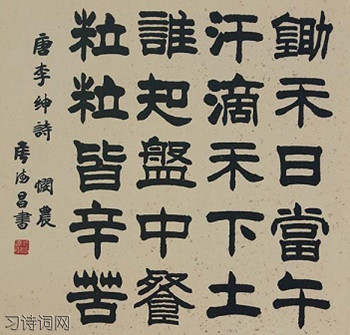 鋤禾日當午
汗滴禾下土
誰知盤中餐
粒粒皆辛苦
唐李紳詩 憫農
昌書
习诗词网